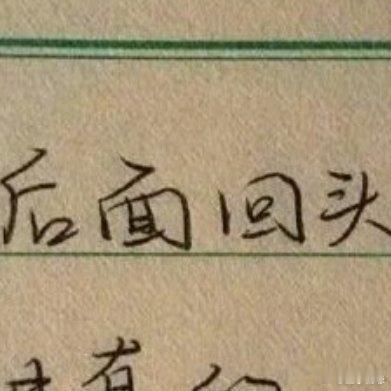 后面回头
有